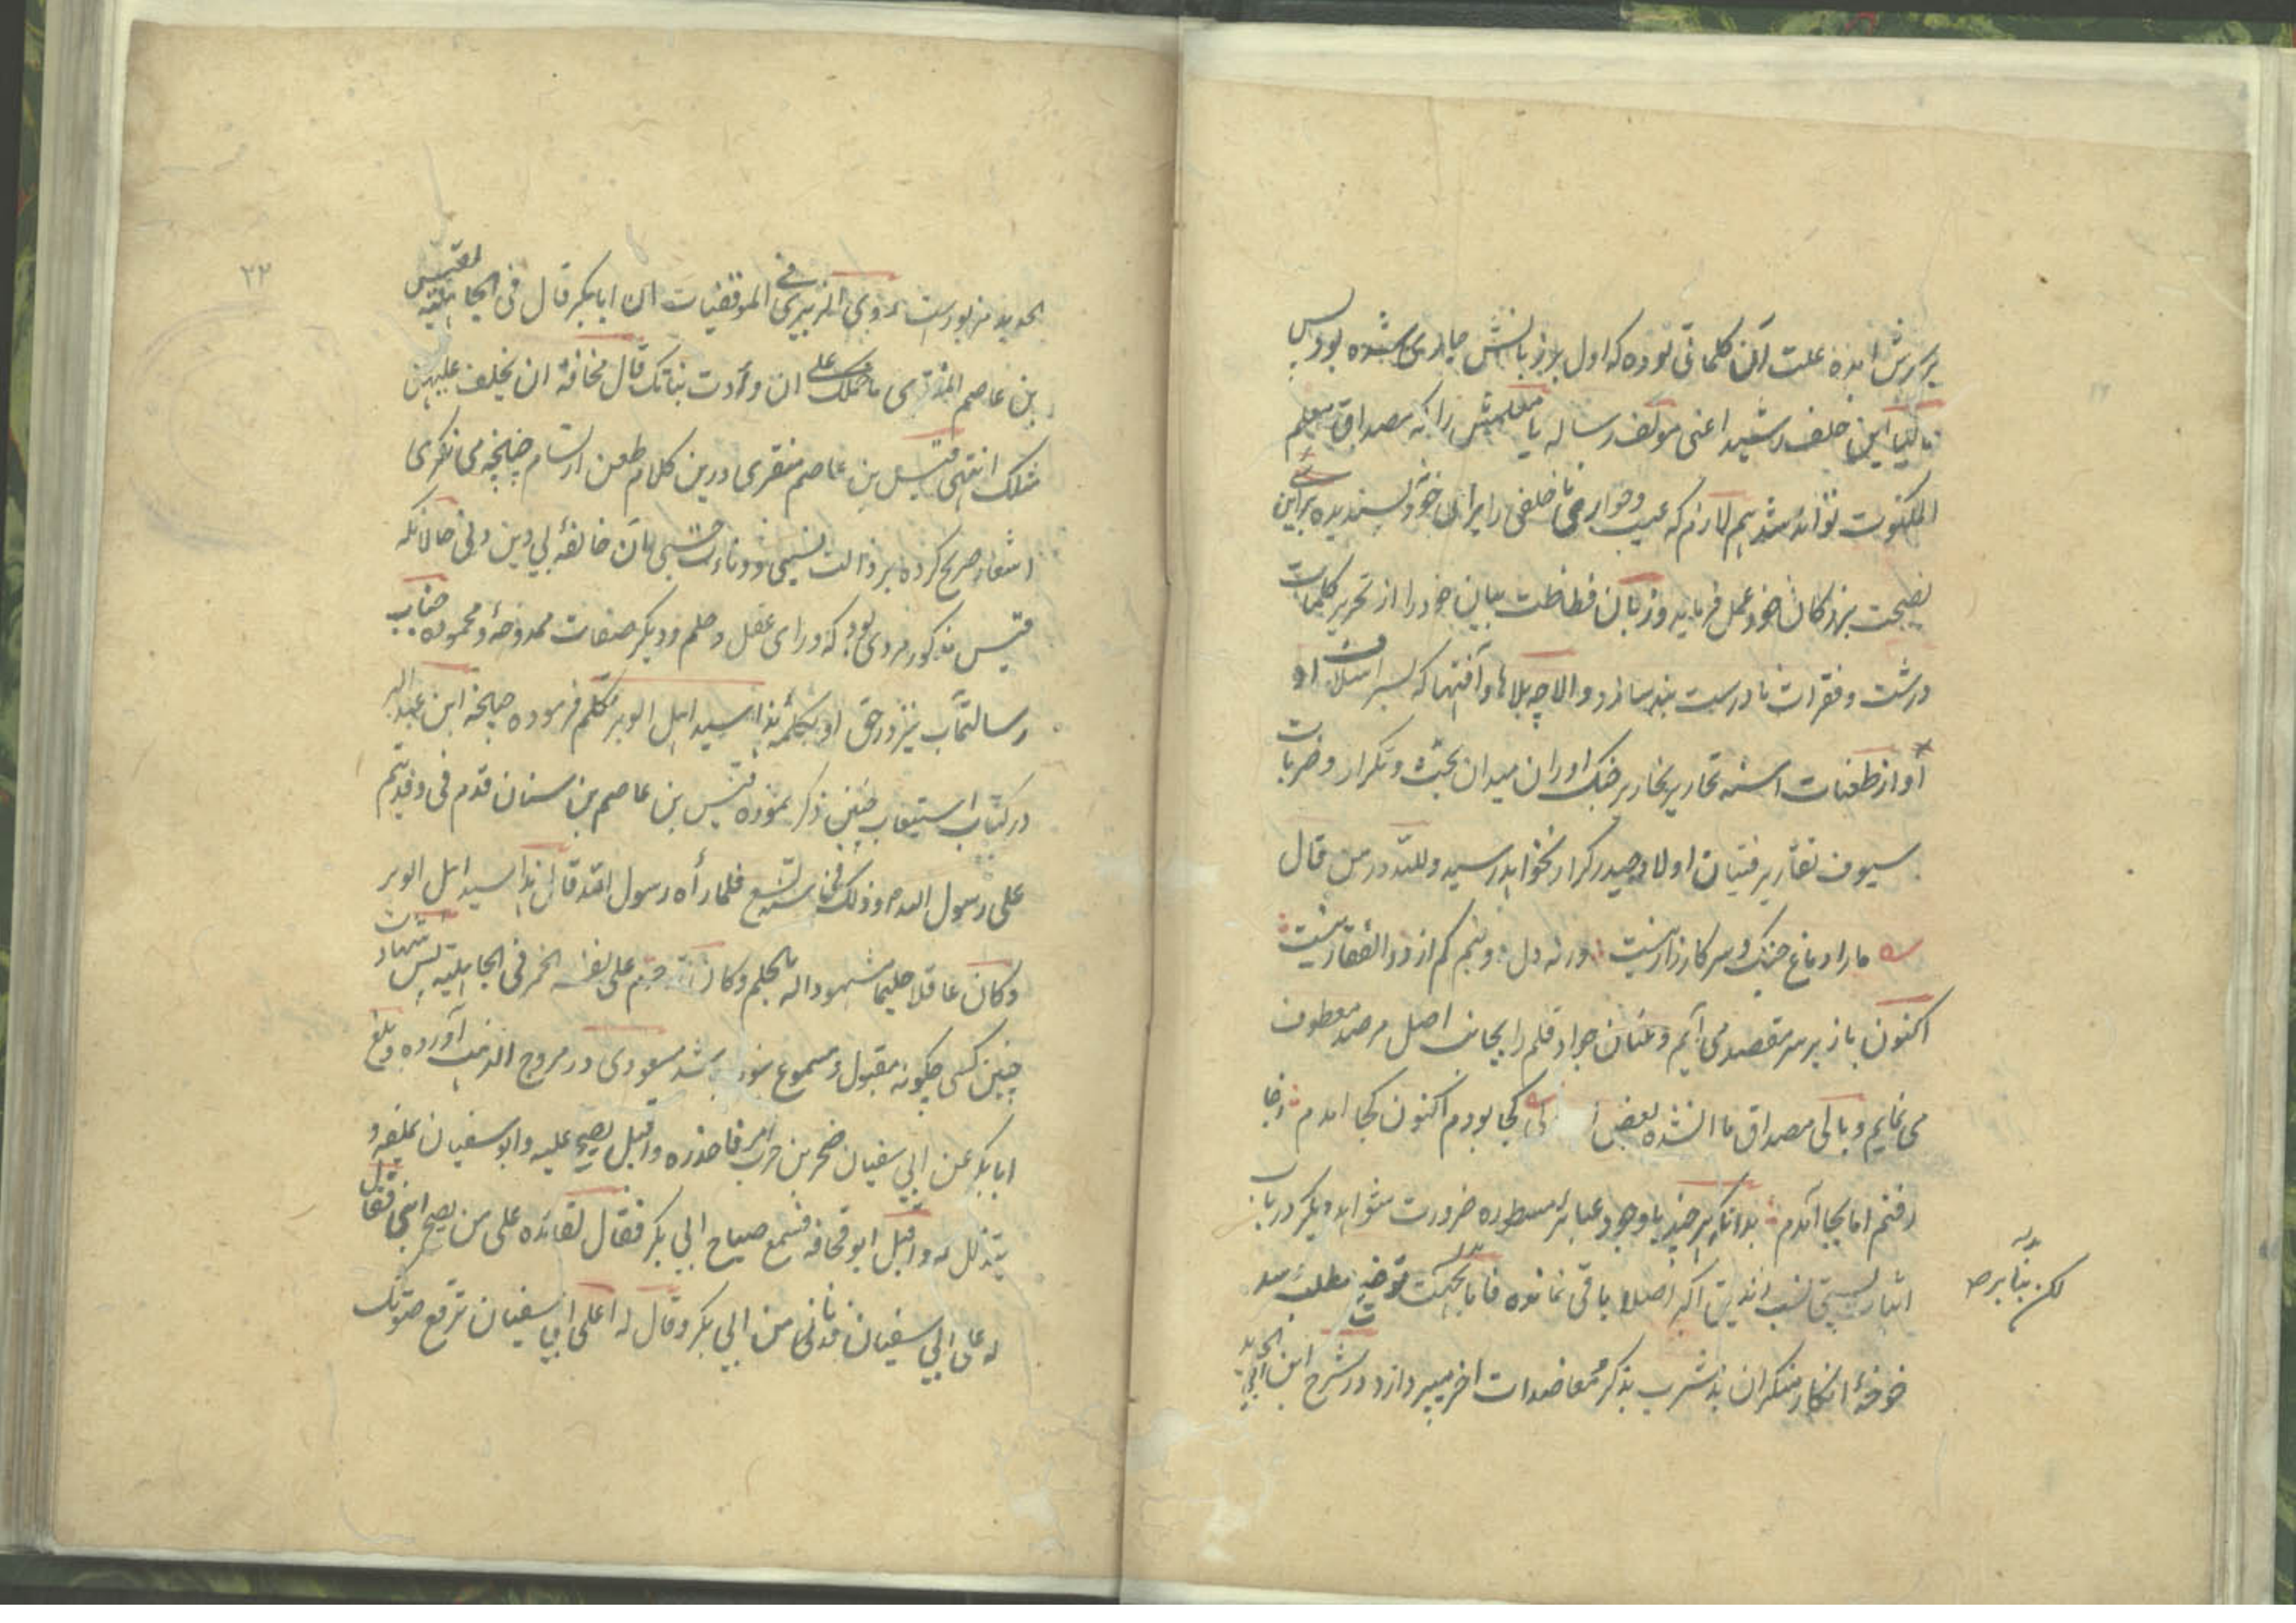 برسرش آمده علت آن کلماتی بوده که اول بر زبانش جاری شده بود پس
این خلف رشید اعنی مؤلف رساله یا معلمش را که مصداق معلم
الملکوت تواند شد هم لازم که عیب و عوار ناخلفی را بر خود پسندیده براین
نصیحت بزرگان خود عمل فرماید و زبان فظاظت بیان خود را از تحریر کلمات
درشت و فقرات نادرست بند سازد والا چه بلاها و آفتها که بسر اسلاف او
او از طعنات اسنه تحاریر نحاریر جنک اوران میدان بحث و تکرار و ضربات
سیوف تقاریر فتیان اولاد حیدر کرار نخواهد رسید ولله در من قال
ما را دماغ جنک و سر کارزار نیست ورنه دل دو نیم کم از ذوالفقار نیست
اکنون باز بر سر مقصد می آیم و عنان جواد قلم را بجانب اصل مرصد معطوف
می نمایم و بالی مصداق ما انشده بعض کجا بودم اکنون کجا آمدم
رفتم اما بجا آمدم بدانکه هر چند با وجود عبائر مسطوره ضرورت شواهد دیگر در باب
اثبات پستی نسب اصلا باقی نمانده فاما بجهت توضیح مطلب و سد
لکن بنابر
خوخهٔ انکار منکران بد مشرب بذکر معاضدات اخر میپردازد در شرح ابن ابی الحدید
۲۲
الحدید مزبورست روی الزبیری فی الموفقیات ان ابابکر قال فی الجاهلیة لقیس
بن عاصم المنقری ما حملک علی ان وأدت بناتک قال مخافة ان یخلف علیهن
مثلک انتهی قیس بن عاصم منقری درین کلام طعن ارتسام چنانچه می نگری
اشعار صریح کرده بر ذالت نسبی و دناءت حسبی آن خالفهٔ بی دین و لی حالانکه
قیس مذکور مردی بود که ورای عقل و حلم و دیگر صفات ممدوحه و محموده جناب
رسالتمآب نیز در حق او بکلمهٔ هذا سید اهل الوبر تکلم فرموده چنانچه ابن عبد البر
در کتاب استیعاب چنین ذکر نموده قیس بن عاصم بن سنان قدم فی وفد تمیم
علی رسول الله ص و ذلک فی سنة تسع فلما رأه رسول الله قال هذا سید اهل الوبر
وکان عاقلا حلیما مشهودا له بالحلم وکان قد حرم علی نفسه الخمر فی الجاهلیة پس شهادت
چنین کسی چگونه مقبول و مسموع نبوده باشد مسعودی در مروج الذهب آورده و بلغ
ابابکر عن ابی سفیان صخر بن حرب امر فاحضره و اقبل یصیح علیه و ابو سفیان یملقه و
یتذلل له و اقبل ابو قحافة فسمع صیاح ابی بکر فقال لقائده علی من یصیح ابنی فقال
له علی ابی سفیان فدنی من ابی بکر وقال له اعلی ابی سفیان ترفع صوتک